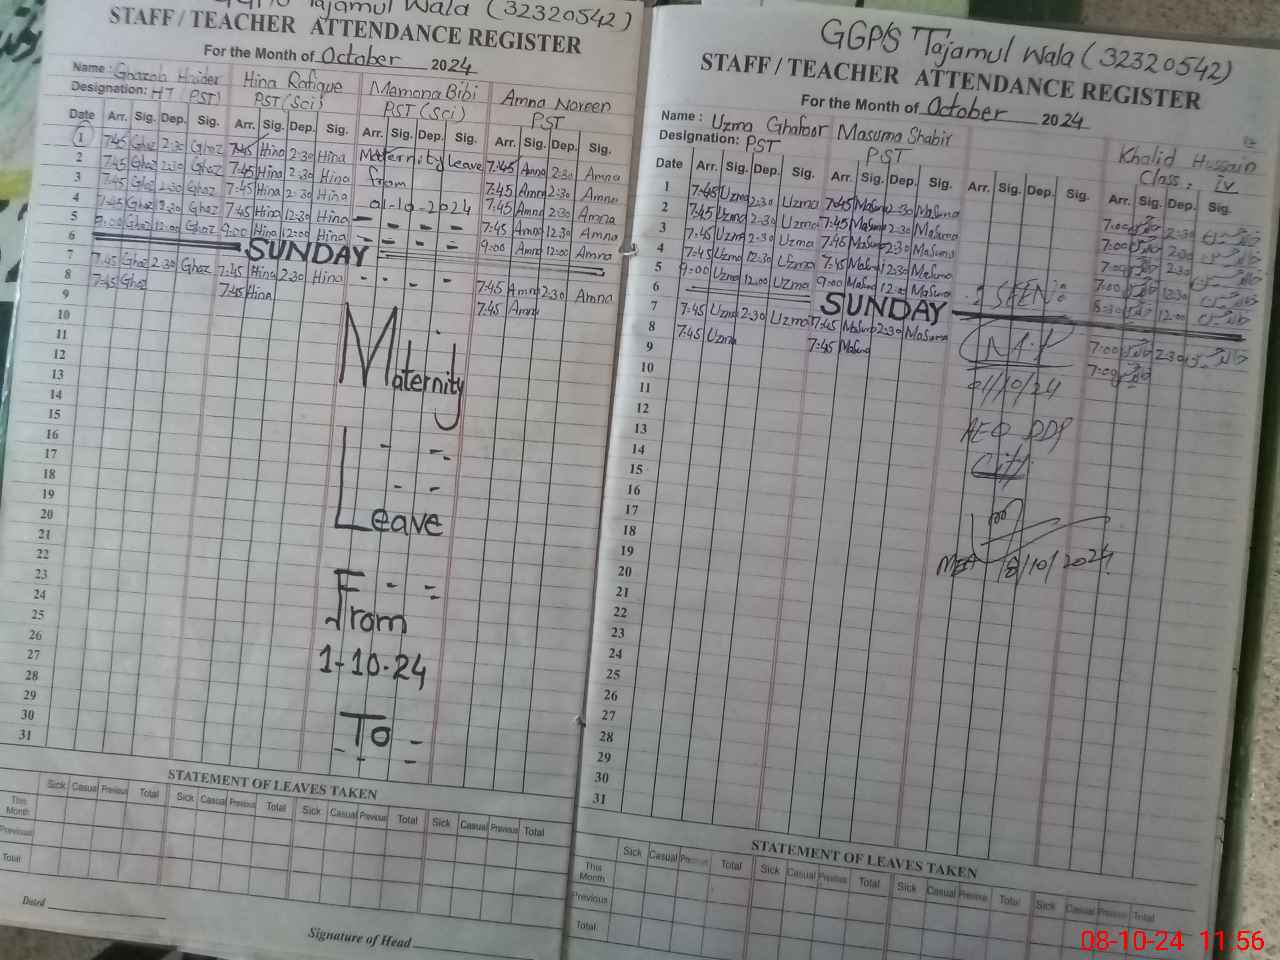 Tajamul Wala (32320542)
STAFF / TEACHER ATTENDANCE REGISTER
For the Month of October 2024
Name: Ghazab Haider Hina Rafique Mamona Bibi Amna Noreen
Designation: HT (PST) PST (Sci) PST (Sci) PST
Date Arr. Sig. Dep. Sig. Arr. Sig. Dep. Sig. Arr. Sig. Dep. Sig. Arr. Sig. Dep. Sig.
1 7:45 Ghaz 2:30 Ghaz 7:45 Hina 2:30 Hina Maternity Leave 7:45 Amna 2:30 Amna
2 7:45 Ghaz 2:30 Ghaz 7:45 Hina 2:30 Hina from 7:45 Amna 2:30 Amna
3 7:45 Ghaz 2:30 Ghaz 7:45 Hina 2:30 Hina 01-10-2024 7:45 Amna 2:30 Amna
4 7:45 Ghaz 12:30 Ghaz 7:45 Hina 12:30 Hina 7:45 Amna 12:30 Amna
5 9:00 Ghaz 12:00 Ghaz 9:00 Hina 12:00 Hina 9:00 Amna 12:00 Amna
6 SUNDAY
7 7:45 Ghaz 2:30 Ghaz 7:45 Hina 2:30 Hina 7:45 Amna 2:30 Amna
8 7:45 Ghaz 7:45 Hina 7:45 Amna
9
10
11
12 Maternity
13
14
15
16
17
18
19
20 Leave
21
22
23
24
25 From
26
27 1-10-24
28
29
30 To
31
STATEMENT OF LEAVES TAKEN
Sick Casual Previous Total Sick Casual Previous Total Sick Casual Previous Total Sick Casual Previous Total
This Month
Previous
Total
Dated
Signature of Head
GGP/S Tajamul Wala (32320542)
STAFF / TEACHER ATTENDANCE REGISTER
For the Month of October 2024
Name: Uzma Ghafoor Masuma Shabir Khalid Hussain
Designation: PST PST Class: iv
Date Arr. Sig. Dep. Sig. Arr. Sig. Dep. Sig. Arr. Sig. Dep. Sig. Arr. Sig. Dep. Sig.
1 7:45 Uzma 2:30 Uzma 7:45 Masuma 2:30 Masuma 7:00 2:30
2 7:45 Uzma 2:30 Uzma 7:45 Masuma 2:30 Masuma 7:00 2:30
3 7:45 Uzma 2:30 Uzma 7:45 Masuma 2:30 Masuma 7:00 2:30
4 7:45 Uzma 12:30 Uzma 7:45 Masuma 12:30 Masuma 7:00 12:30
5 9:00 Uzma 12:00 Uzma 9:00 Masuma 12:00 Masuma SEEN 8:30 12:00
6 SUNDAY
7 7:45 Uzma 2:30 Uzma 7:45 Masuma 2:30 Masuma 7:00 2:30
8 7:45 Uzma 7:45 Masuma 7:00
9
10 01/10/24
11
12 AEO
13
14
15
16
17
18
19
20 MEA 8/10/2024
21
22
23
24
25
26
27
28
29
30
31
STATEMENT OF LEAVES TAKEN
Sick Casual Previous Total Sick Casual Previous Total Sick Casual Previous Total Sick Casual Previous Total
This Month
Previous
Total
08-10-24 11.56